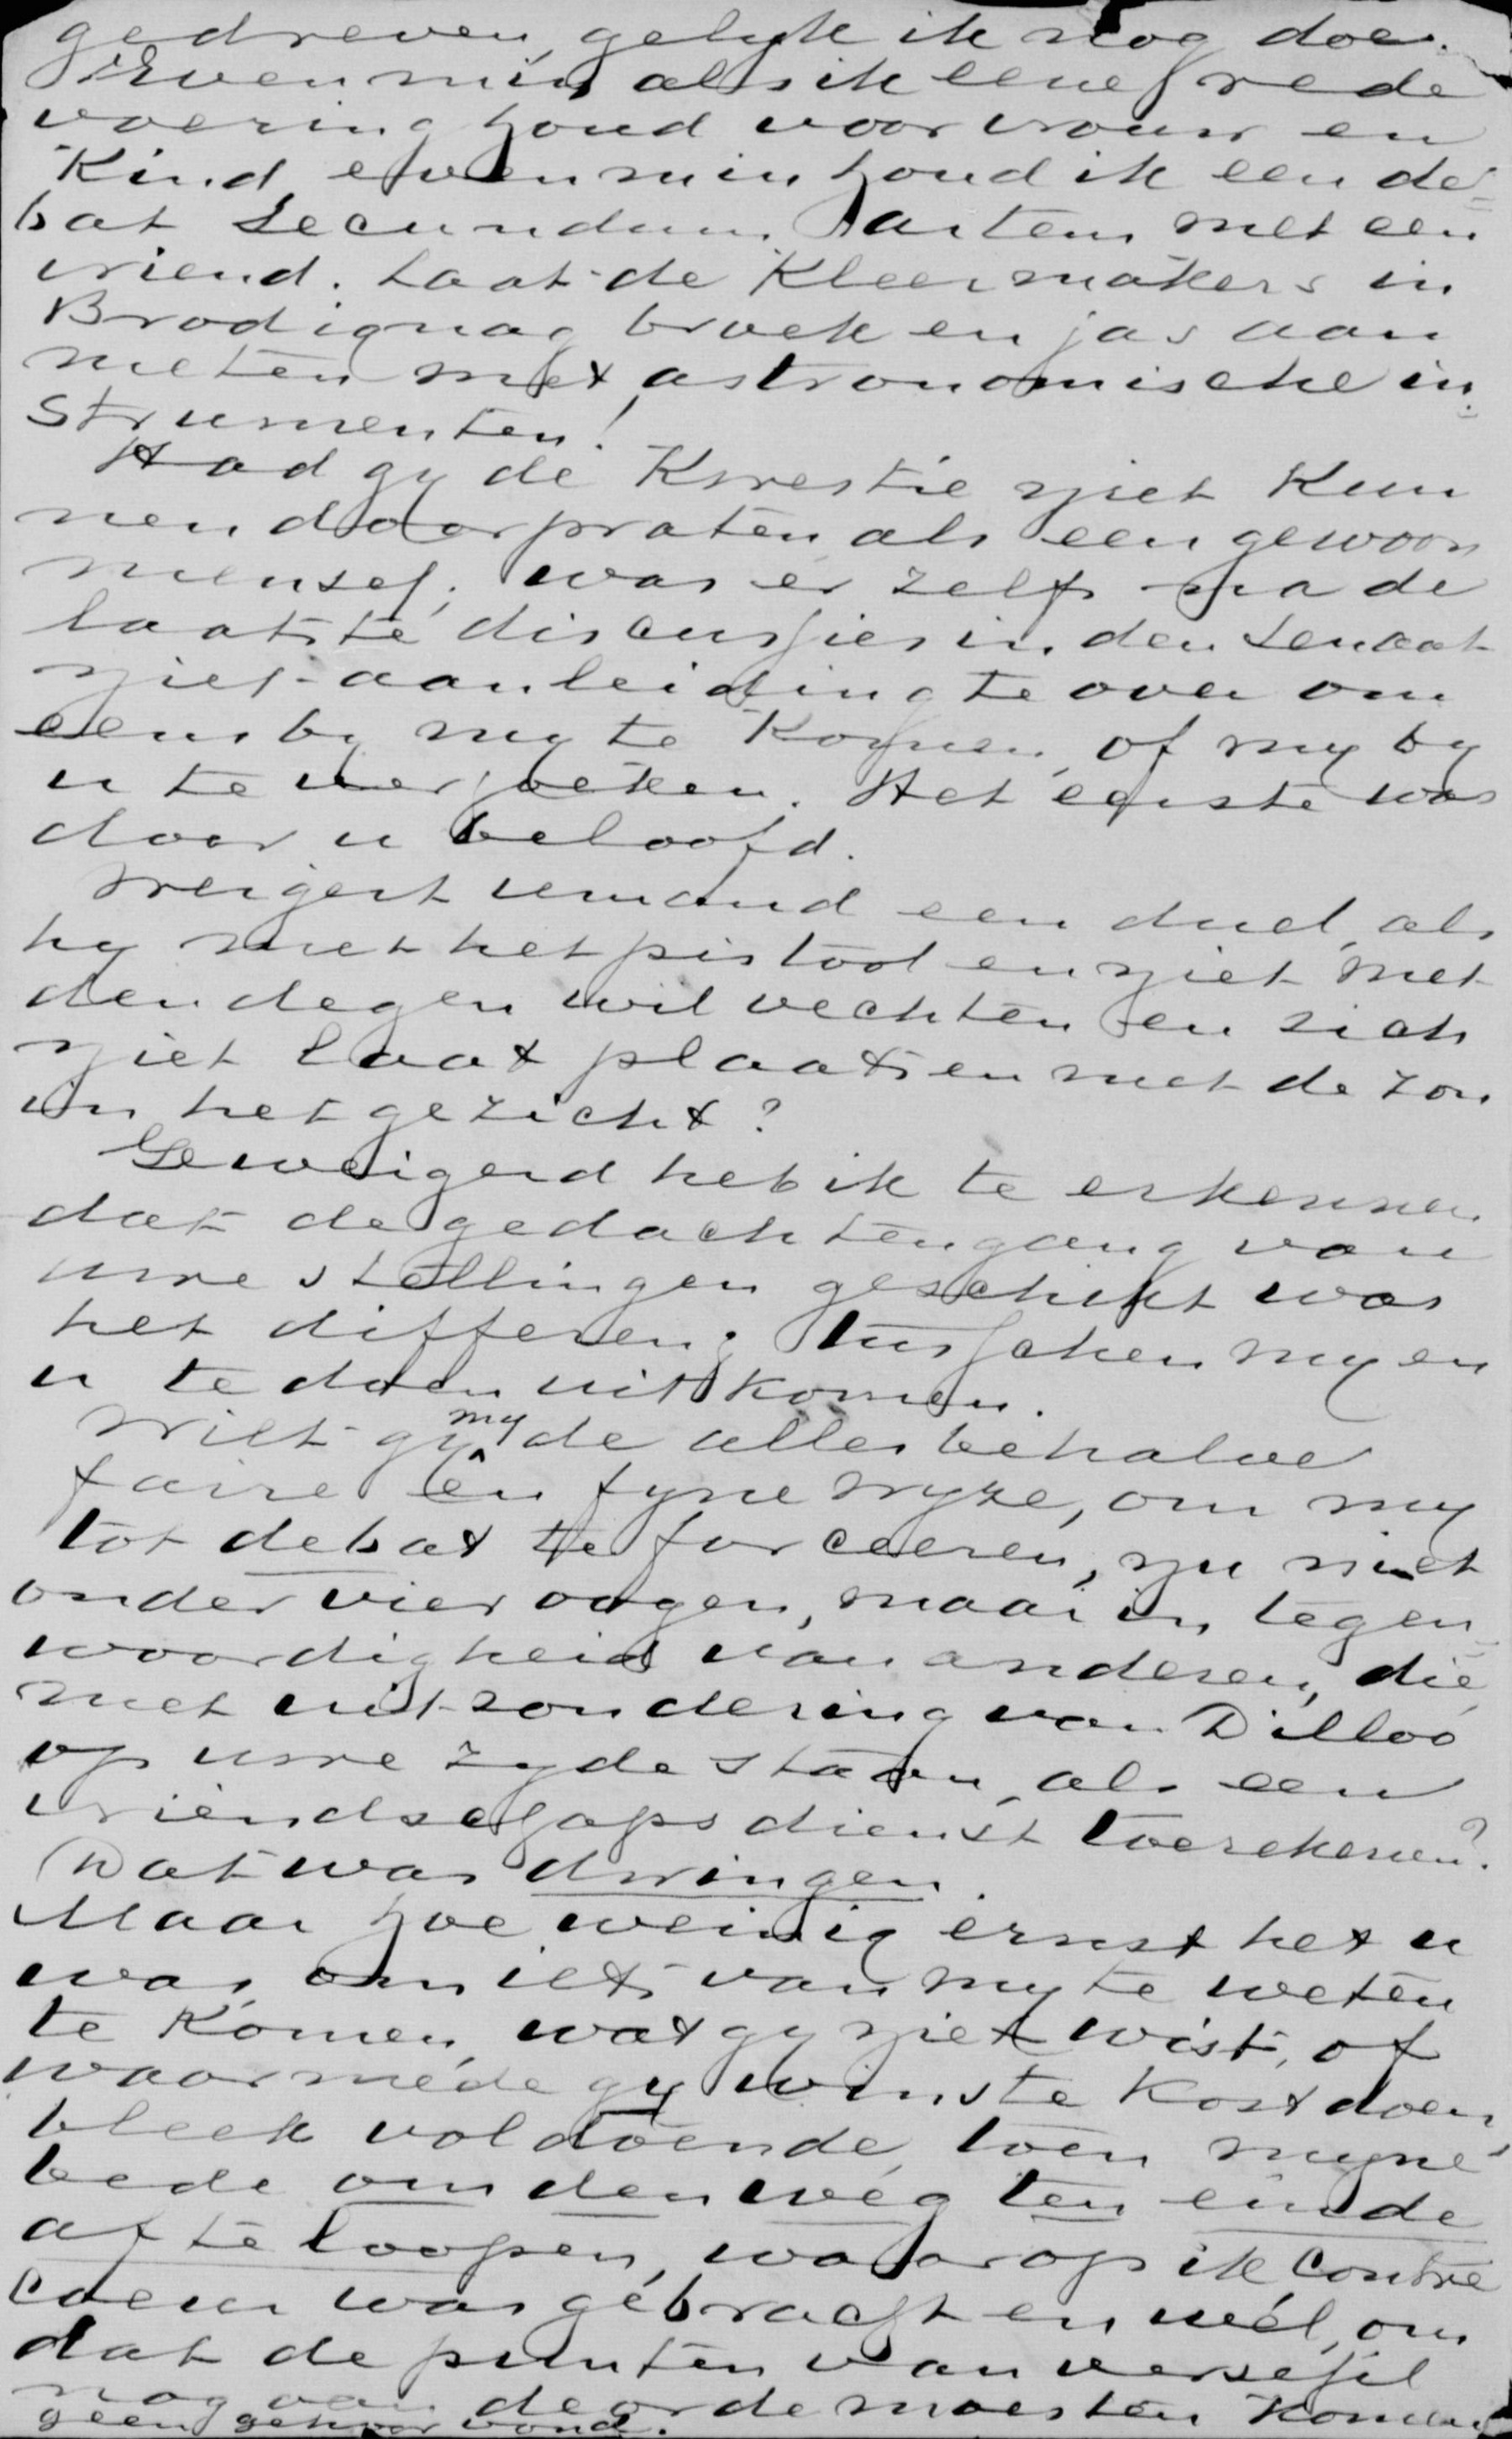 gedreven, gelyk ik nog doe.
Evenmin als ik eene rede
voering houd voor vrouw en
Kind, evenmin houd ik een de=
bat secundum artem met een
vriend. Laat de Kleermakers in
Brodignag broek en jas aan
meten met astronomische in=
strumenten!
Had gy de Kwestie niet Kun
nen doorpraten als een gewoon
mensch; was er zelfs na de
laatste discussies in den Senaat
niet aanleiding te over om
eens by my te Komen, of my by
u te verzoeken. Het eerste was
door u beloofd.
Weigert iemand een duel, als
hy met het pistool en niet met
den degen wil vechten en zich
niet laat plaatsen met de zon
in het gezicht?
Geweigerd heb ik te erkennen
dat de gedachtengang van
uwe stellingen geschikt was
het differend tusschen my en
u te doen uitkomen.
Wilt gy my de allesbehalve
faire en fyne wyze, om my
tot debat te forceeren, nu niet
onder vier oogen, maar in tegen=
woordigheid van anderen, die
met uitzondering van Dilloo
op uwe zyde staan, als een
vriendschapsdienst toerekenen?
Dat was dwingen.
Maar hoe weinig ernst het u
was, om iets van my te weten
te Komen, wat gy niet wist, of
waarmede gy winste Kost doen,
bleek voldoende, toen myne
bede om den weg ten einde
af te loopen, waarop ik contre
coeur was gebracht en wel, om
dat de punten van verschil
nog aan de orde moesten Komen,
geen gehoor vond.